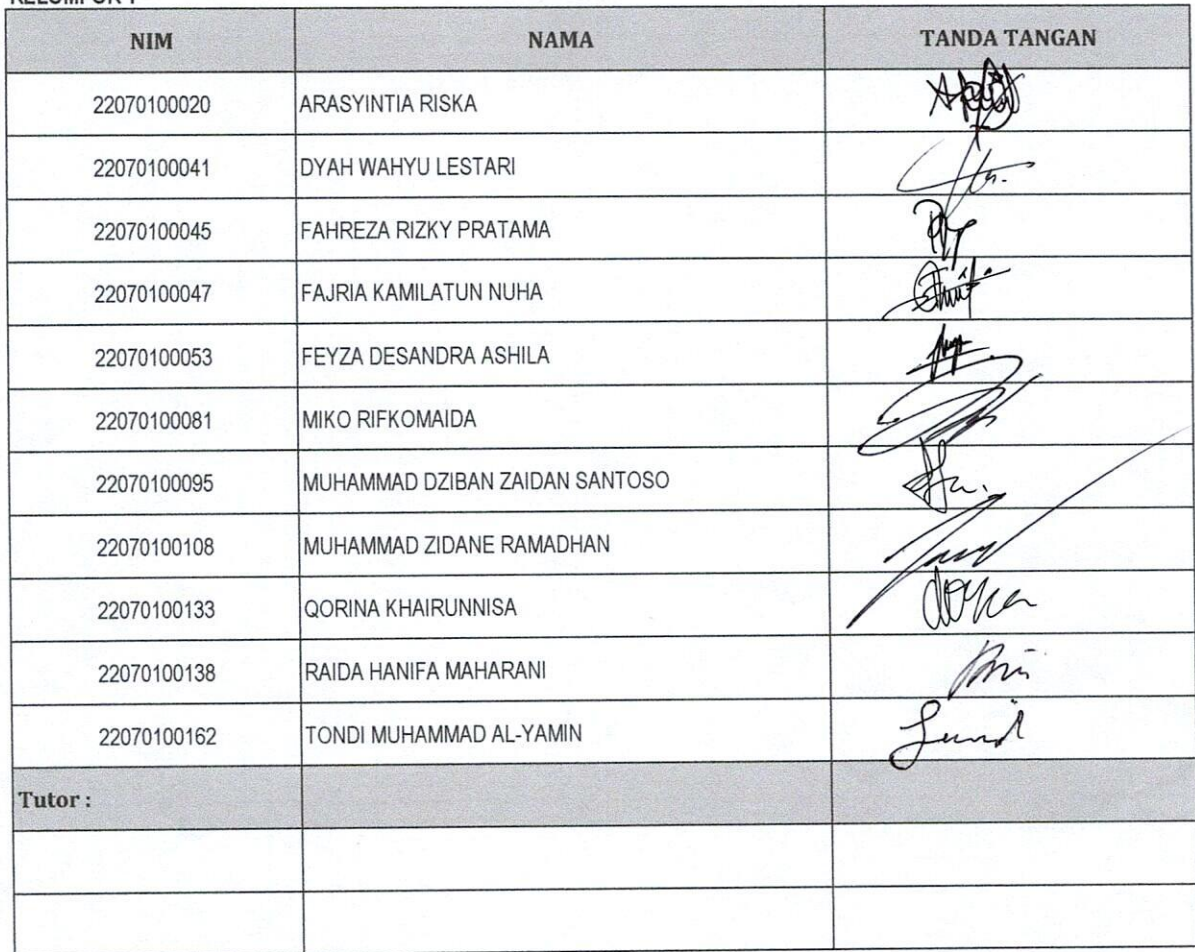 NIM NAMA TANDA TANGAN
22070100020 ARASYINTIA RISKA
22070100041 DYAH WAHYU LESTARI
22070100045 FAHREZA RIZKY PRATAMA
22070100047 FAJRIA KAMILATUN NUHA
22070100053 FEYZA DESANDRA ASHILA
22070100081 MIKO RIFKOMAIDA
22070100095 MUHAMMAD DZIBAN ZAIDAN SANTOSO
22070100108 MUHAMMAD ZIDANE RAMADHAN
22070100133 QORINA KHAIRUNNISA
22070100138 RAIDA HANIFA MAHARANI
22070100162 TONDI MUHAMMAD AL-YAMIN
Tutor :